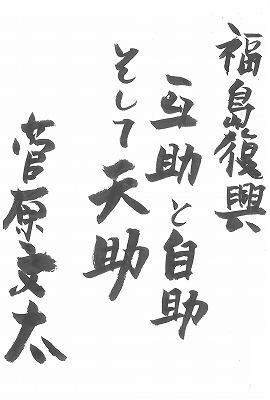 福島復興
互助と自助
そして天助
菅原文太